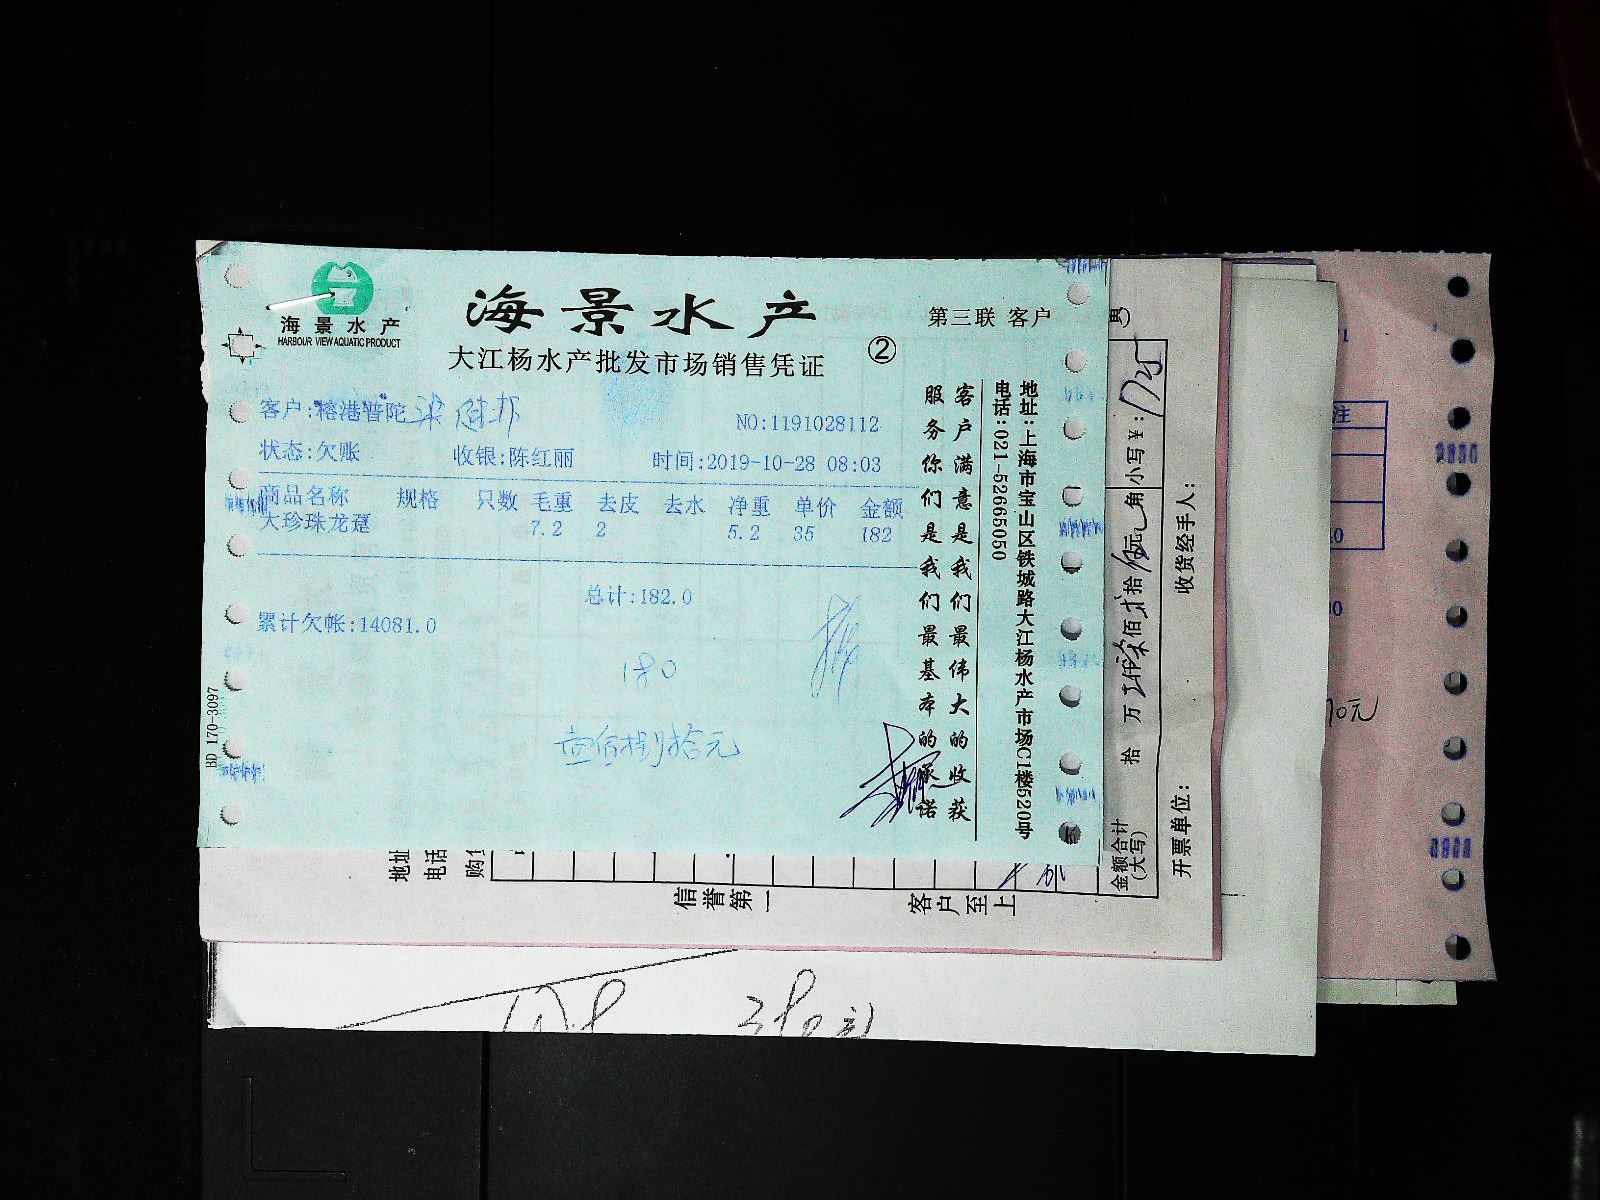 海景水产
HARBOUR VIEW AQUATIC PRODUCT
海景水产
大江杨水产批发市场销售凭证
②
第三联 客户
客户:"榕港普陀
NO:1191028112
状态:欠账 收银:陈红丽 时间:2019-10-28 08:03
商品名称 规格 只数 毛重 去皮 去水 净重 单价 金额
大珍珠龙趸 7.2 2 5.2 35 182
总计:182.0
累计欠帐:14081.0
180
壹佰捌拾元
BD 170-3097
客户满意是我们最伟大的收获
服务你们是我们最基本的承诺
地址:上海市宝山区铁城路大江杨水产市场C1楼520号
电话:021-52665050
金额合计
(大写)
拾 万 仟 柒 佰 贰 拾 伍 元 角 小写¥: 1725
开票单位: 收货经手人:
地址
电话
信誉第一
客户至上
注
70元